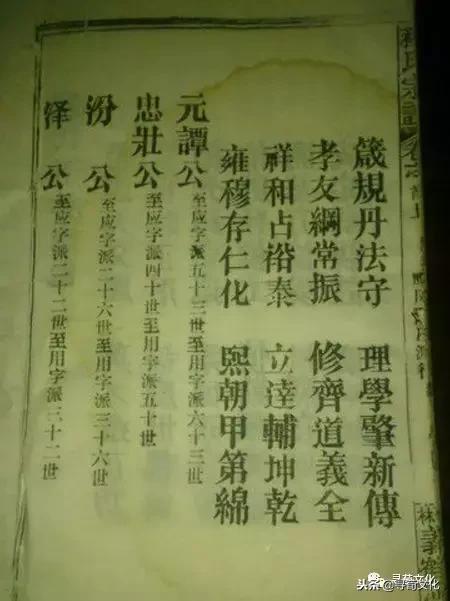 氏宗譜
箴規丹法守 理學肇新傳
孝友綱常振 修齊道義全
祥和占裕泰 立達輔坤乾
雍穆存仁化 熙朝甲第綿
元譚公至应字派五十三世至用字派六十三世
忠壯公至应字派四十世至用字派五十世
汾公至应字派二十六世至用字派三十六世
泽公至应字派二十二世至用字派三十二世
寻荀文化
头条@寻荀文化